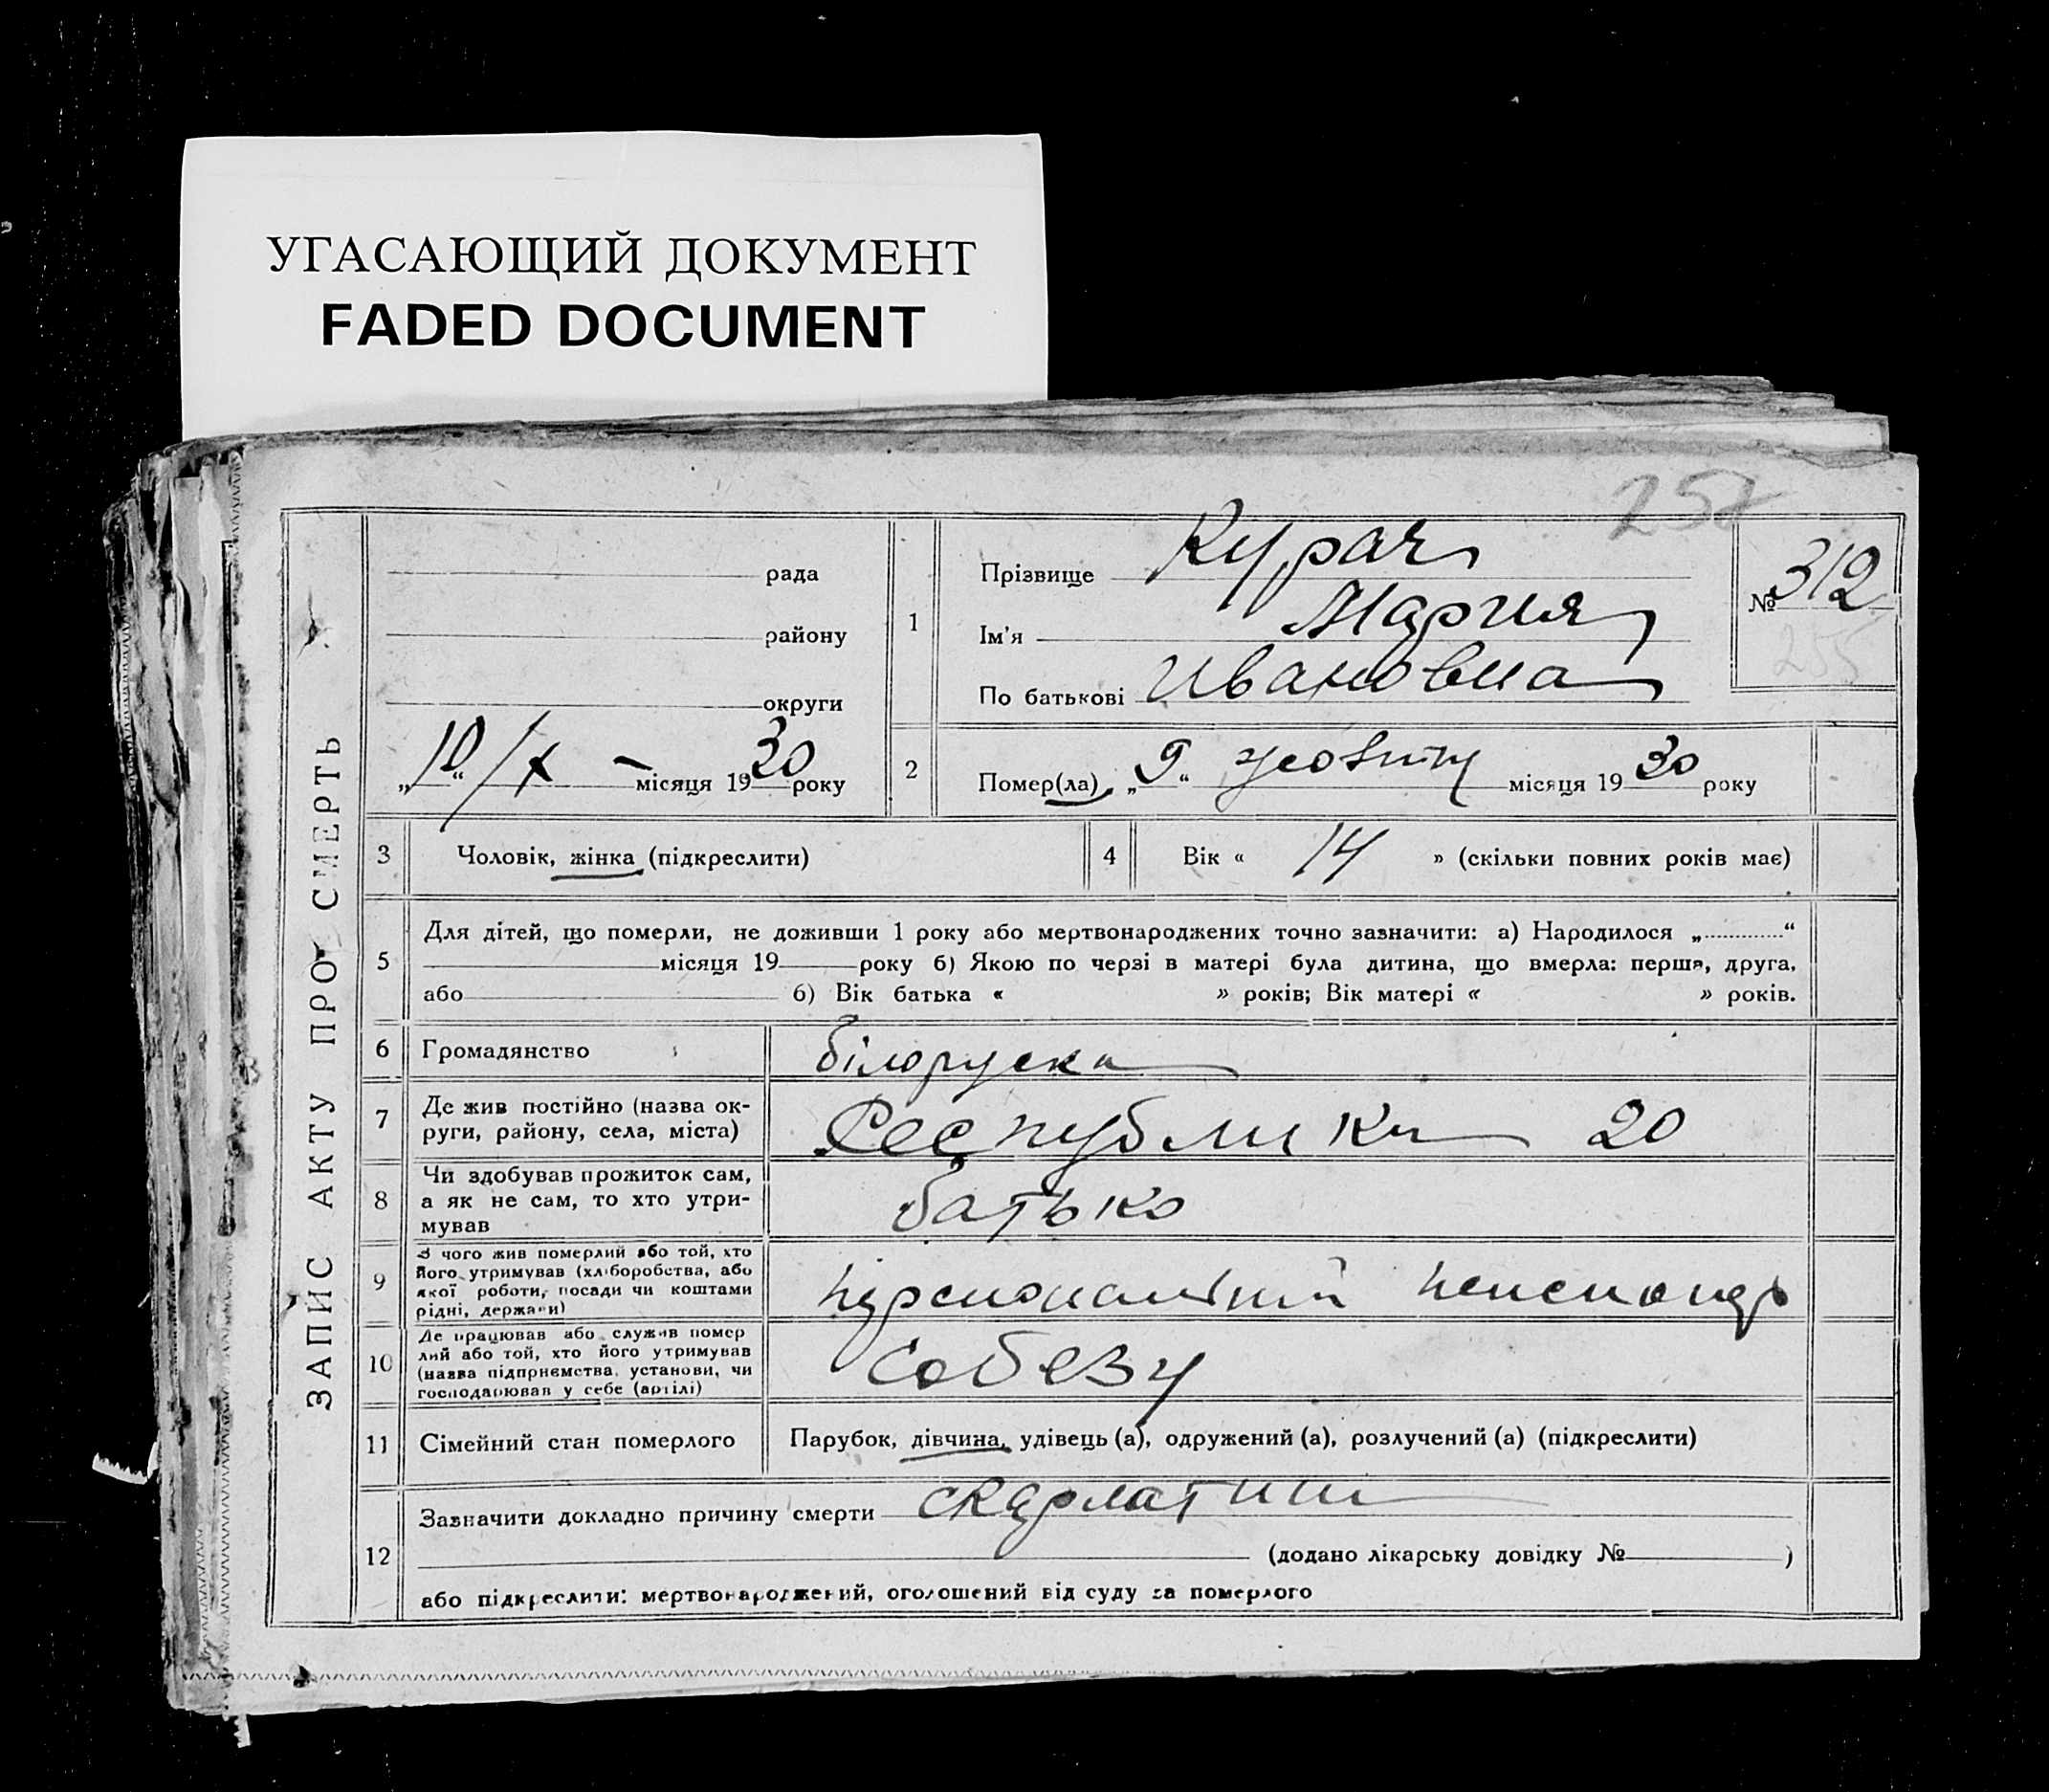 УГАСАЮЩИЙ ДОКУМЕНТ
FADED DOCUMENT
257
ЗАПИС АКТУ ПРО СМЕРТЬ
рада
району
округи
„10“ /X – місяця 1930 року
1
Прізвище Курач
Ім'я Мария
По батькові Ивановна
№ 312
255
2
Помер(ла) „9“ жовтня місяця 1930 року
3 Чоловік, жінка (підкреслити)
4 Вік « 14 » (скільки повних років має)
5 Для дітей, що померли, не доживши 1 року або мертвонароджених точно зазначити: а) Народилося „ “
місяця 19 року б) Якою по черзі в матері була дитина, що вмерла: перша, друга,
або б) Вік батька « » років; Вік матері « » років.
6 Громадянство білоруска
7 Де жив постійно (назва ок-
руги, району, села, міста) Республики 20
8 Чи здобував прожиток сам,
а як не сам, то хто утри-
мував батько
9 З чого жив померлий або той, хто
його утримував (хліборобства, або
якої роботи, посади чи коштами
рідні, держави) пенсионер
10 Де працював або служив помер
лий або той, хто його утримував
(назва підприємства, установи, чи
господарював у себе (артілі) Собезу
11 Сімейний стан померлого Парубок, дівчина, удівець (а), одружений (а), розлучений (а) (підкреслити)
12 Зазначити докладно причину смерти скарлатини
(додано лікарську довідку № )
або підкреслити: мертвонароджений, оголошений від суду за померлого